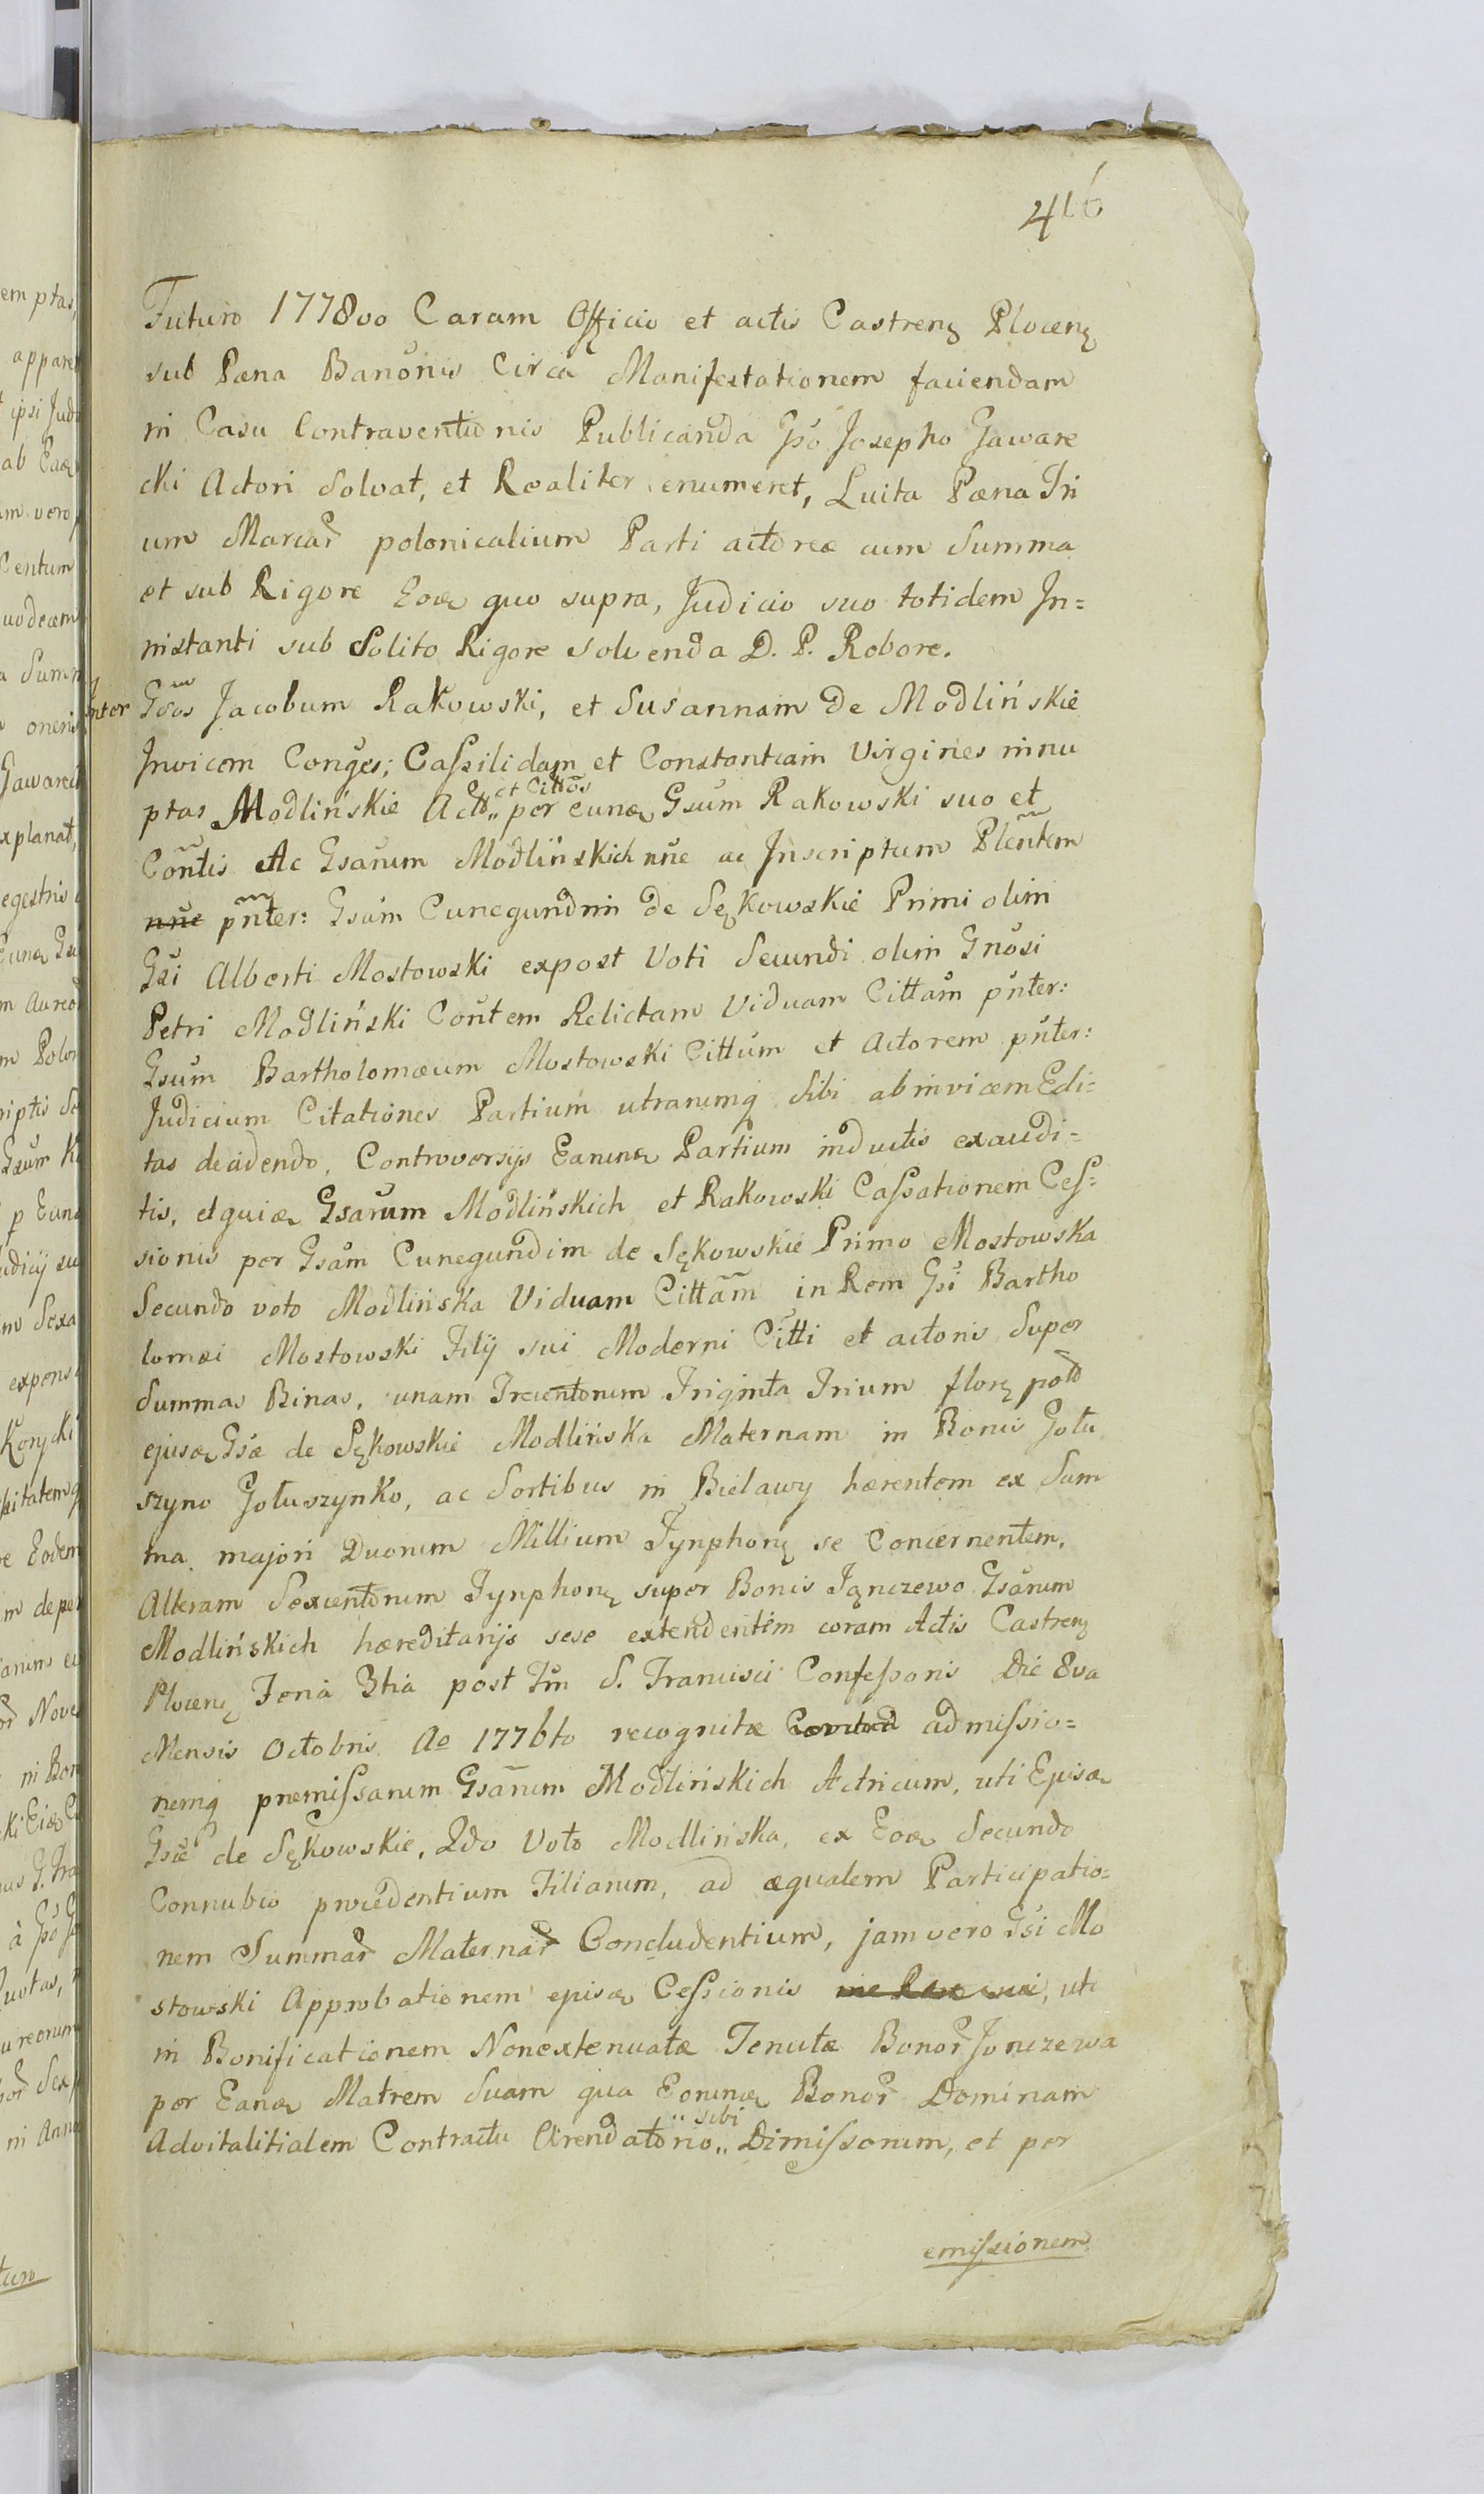 416
Futuro 1778vo Caram Officio et actis Castrenz Plocenz
sub Pæna Banonis Circa Manifestationem faciendam
in Casu Contraventionis Publicanda Gso Josepho Gaware
cki Actori Solvat, et Realiter enumeret, Luita Pæna Tri
um Marcar polonicalium Parti actoreæ cum Summa
et sub Rigore Eoæ quo supra, Judicio suo totidem In=
nistanti sub Solito Rigore solvenda D. P. Robore.
Inter Gsos Jacobum Rakowski, et Susannam de Modlińskie
Invicem Conges; Cassilidam et Constantiam Virgines innu
ptas Modlińskie Act,, et Cittos per eunæ Gsum Rakowski suo et
Contis Ac Gsarum Modlińskich nne ac Inscriptum Plentem
nne pnter: Gsam Cunegundim de Sękowskie Primi olim
Gsi Alberti Mostowski expost Voti Secundi olim Gnosi
Petri Modliński Contem Relictam Viduam Cittam pnter:
Gsum Bartholomæum Mostowski Cittum et Actorem pnter:
Judicium Citationes Partium utrarumq Sibi abinvicem Edi=
tas decidendo, Controversijs Earunæ Partium inductis exaudi=
tis, etquiæ Gsarum Modlińskich et Rakowski Cassationem Ces=
sionis per Gsam Cunegundim de Sękowskie Primo Mostowska
Secundo voto Modlińska Viduam Cittam in Rem Gsi Bartho
lomæi Mostowski Filij sui Moderni Citti et actoris Super
Summas Binas, unam Trecentorum Triginta Trium florz pold
ejusæ Gsæ de Sękowskie Modlińska Maternam in Bonis Gołu
szyno Gołuszynko, ac Sortibus in Bielawy hærentem ex Sum
ma majori Duorum Millium Tynphonz se Concernentem,
Alteram Sexcentorum Tynphonz super Bonis Jączewo Gsarum
Modlińskich hæreditarijs sese extendentem coram Actis Castrenz
Plocenz Feria 3tia post Fm S. Francisci Confessoris Die 8va
Mensis Octobris Ao 1776to recognitæ admissio=
nemq premissarum Gsarum Modlińskich Actricum, uti Ejusæ
Gsæ de Sękowskie, 2do Voto Modlińska, ex Eoæ Secundo
Connubio procedentium Filiarum, ad æqualem Participatio=
nem Summar Maternar Concludentium, jam vero Gsi Mo
stowski Approbationem ejusæ Cessionis uti
in Bonificationem Nonextenuatæ Tenutæ Bonor Jonczewa
per Eanæ Matrem Suam qua Eorunæ Bonor Dominam
Advitalitialem Contractu Arendatorio,, sibi Dimissorum, et per
emissionem